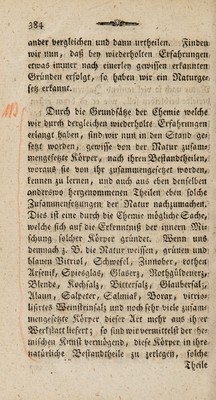 384
ander vergleichen und dann urtheilen. Finden
wir nun, daß bey wiederholten Erfahrungen
etwas immer nach einerley gewissen erkannten
Gründen erfolgt, so haben wir ein Naturge-
setz erkannt.
Durch die Grundsätze der Chemie welche
wir durch dergleichen wiederholte Erfahrungen
erlangt haben, sind wir nun in den Stand ge-
setzt worden, gewisse von der Natur zusam-
mengesetzte Körper, nach ihren Bestandtheilen,
woraus sie von ihr zusammengesetzt worden,
kennen zu lernen, und auch aus eben denselben
anderswo hergenommenen Theilen eben solche
Zusammensetzungen der Natur nachzumachen.
Dies ist eine durch die Chemie mögliche Sache,
welche sich auf die Erkenntniß der innern Mi-
schung solcher Körper gründet. Wenn uns
demnach z. B. die Natur weissen, grünen und
blauen Vitriol, Schwefel, Zinnober, rothen
Arsenik, Spiesglas, Glaserz, Rothgüldenerz,
Blende, Kochsalz, Bittersalz, Glaubersalz,
Alaun, Salpeter, Salmiak, Borax, vitrio-
lisirtes Weinsteinsalz und noch sehr viele zusam-
mengesetzte Körper dieser Art mehr aus ihrer
Werkstatt liefert; so sind wir vermittelst der che-
mischen Kunst vermögend, diese Körper in ihre
natürliche Bestandtheile zu zerlegen, solche
Theile